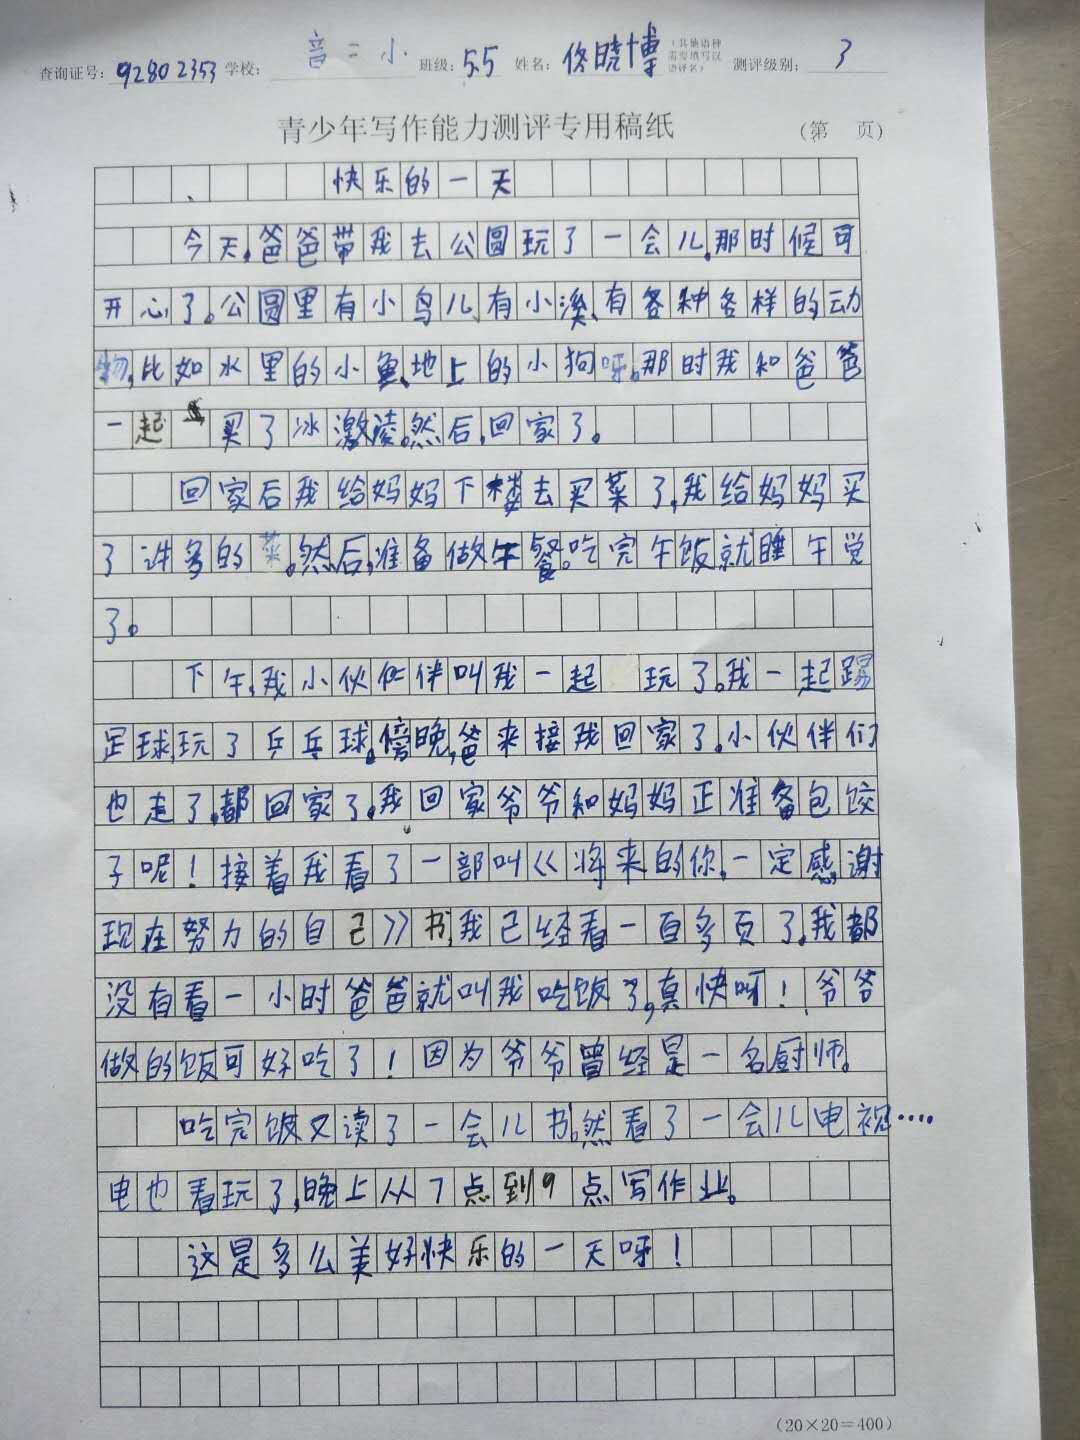 查询证号: 92802353 学校: 音二小 班级: 55 姓名: 佟晓博 (其他语种需要填写汉语译名) 测评级别: 3
青少年写作能力测评专用稿纸 (第 页)
快乐的一天
今天,爸爸带我去公圆玩了一会儿,那时候可
开心了。公圆里有小鸟儿、有小溪、有各种各样的动
物,比如水里的小鱼、地上的小狗呀。那时我和爸爸
一起买了冰激凌。然后,回家了。
回家后我给妈妈下楼去买菜了,我给妈妈买
了许多的菜。然后,准备做午餐。吃完午饭就睡午觉
了。
下午,我小伙伴叫我一起 玩了。我一起踢
足球,玩了乒乓球。傍晚,爸来接我回家了。小伙伴们
也走了,都回家了。我回家爷爷和妈妈正准备包饺
子呢!接着我看了一部叫《将来的你,一定感谢
现在努力的自己》书,我已经看一百多页了。我都
没有看一小时爸爸就叫我吃饭了,真快呵!爷爷
做的饭可好吃了!因为爷爷曾经是一名厨师。
吃完饭又读了一会儿书。然看了一会儿电视····
电也看玩了,晚上从7点到9点写作业。
这是多么美好快乐的一天呀!
(20×20=400)